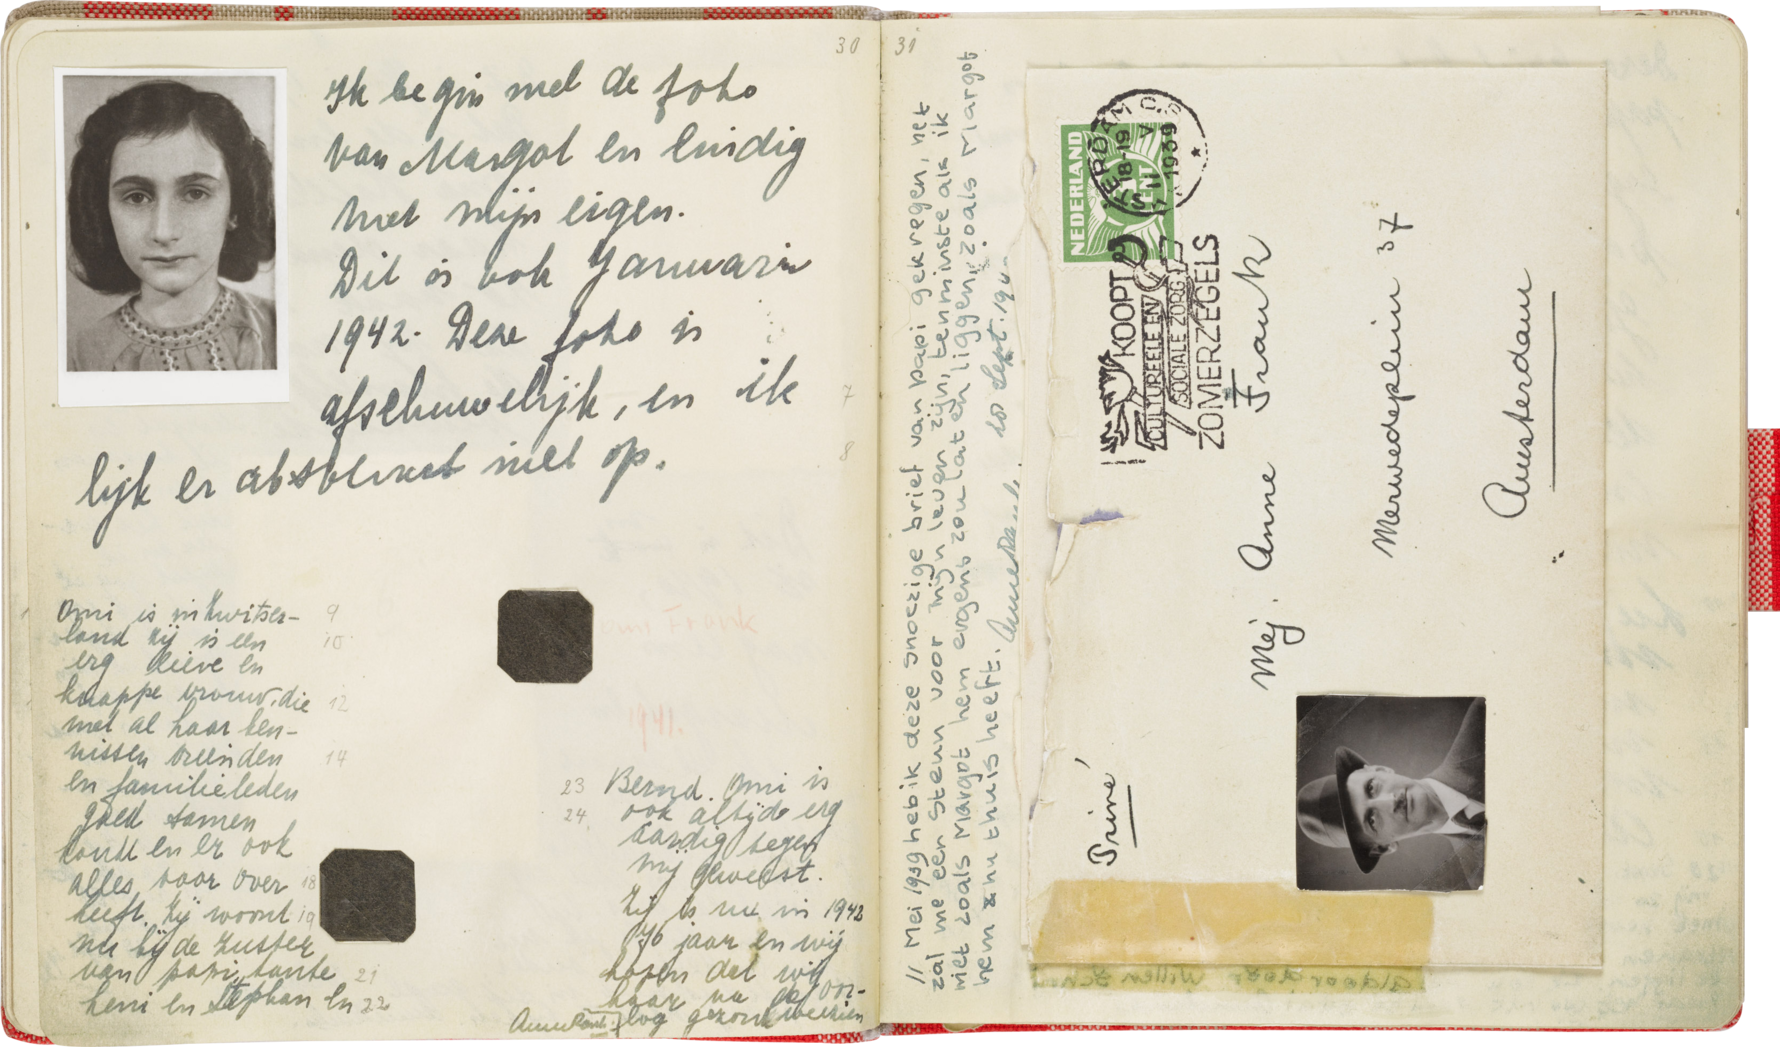 30
Ik begin met de foto
van Margot en eindig
met mijn eigen.
Dit is ook Januari
1942. Deze foto is
afschuwelijk, en ik
lijk er absoluut niet op.
7
8
Omi is in Zwitser-
land zij is een
erg lieve en
knappe vrouw, die
met al haar ken-
nissen vrienden
en familieleden
goed samen
kondt en er ook
alles voor over
heeft. Zij woont
nu bij de zuster
van papi, tante
Leni en Stephan en
9
10
12
14
18
19
21
22
Frank
1941.
23
24
Bernd. Omi is
ook altijd erg
aardig tegen
mij geweest.
Zij is nu in 1942
76 jaar en wij
hopen dat wij
haar na de oor-
log gezond weerzien
Anne Frank.
31
11 Mei 1939 heb ik deze snoezige brief van papi gekregen, het
zal me een steun voor mijn leven zijn, tenminste als ik
niet zoals Margot hem ergens zou laten liggen, zoals Margot
hem nu thuis heeft. Anne Frank. Sept. 194
NEDERLAND
CENT
AMSTERDAM C.S.
18-19
11 V
1939
KOOPT
CULTUREELE EN
SOCIALE ZORG
ZOMERZEGELS
Mej. Anne Frank
Merwedeplein 37
Amsterdam
Privé